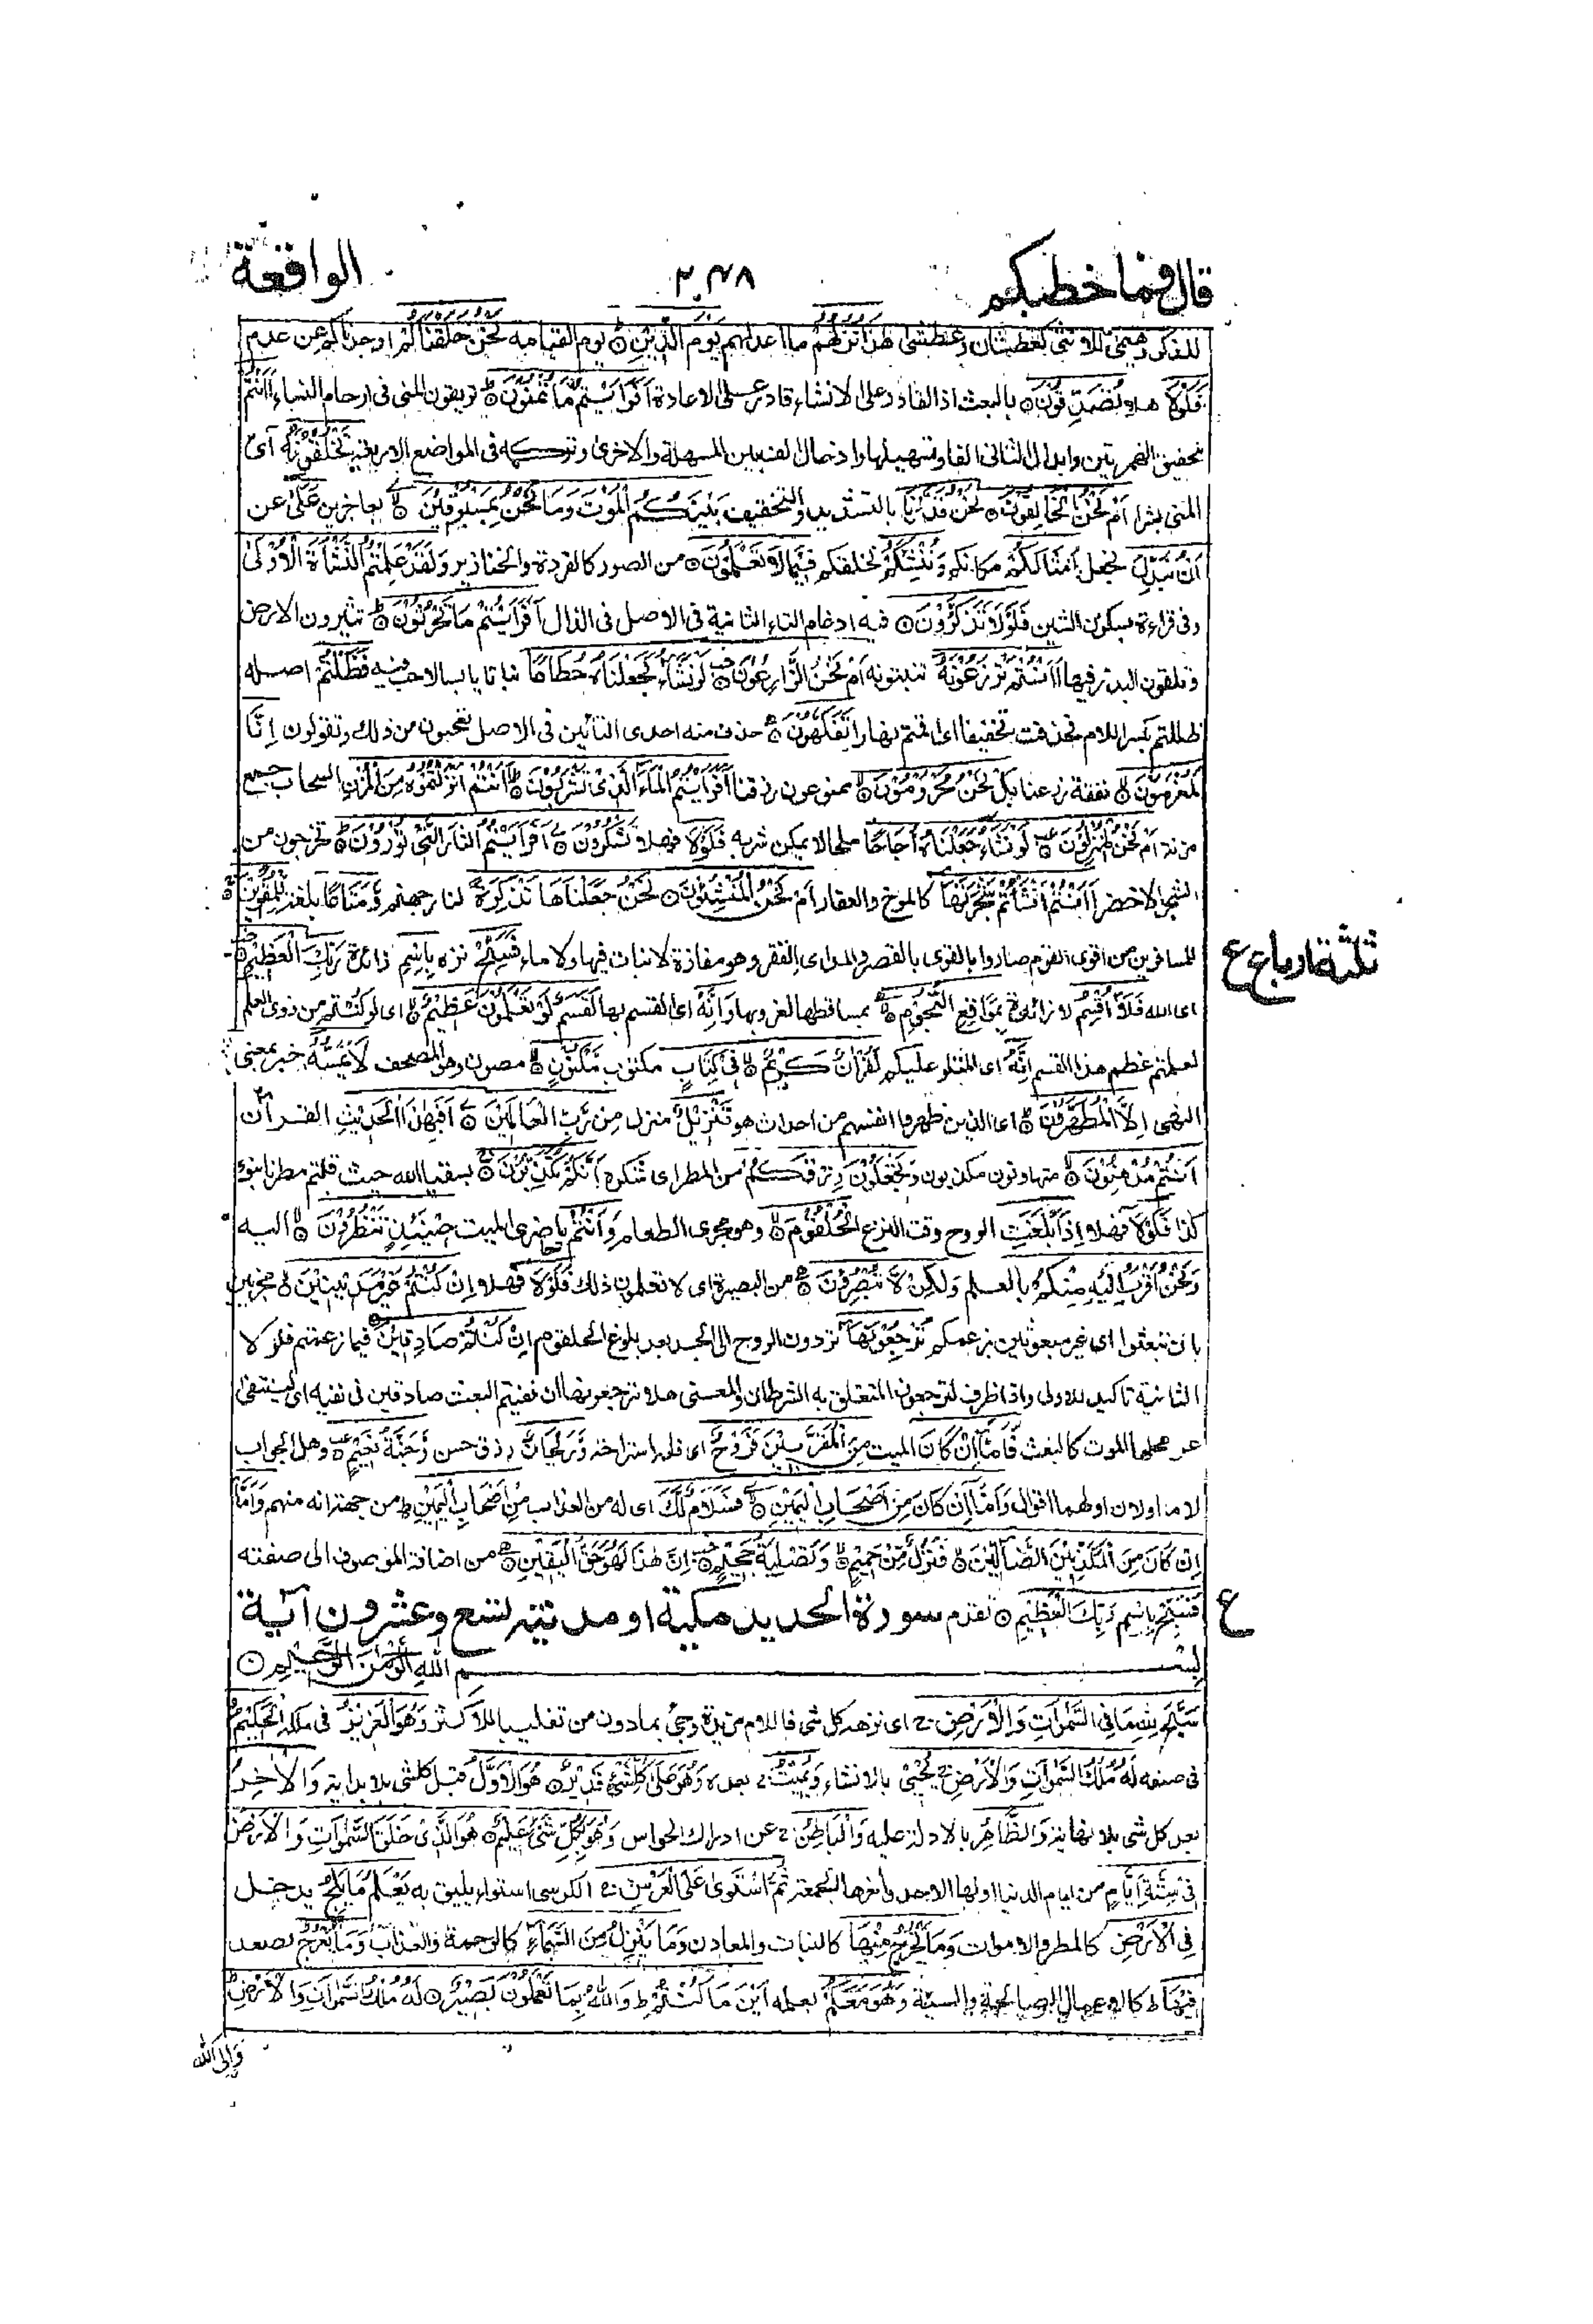 قال فما خطبكم
٢٠٣٨
الواقعة
للذكر وهيمى للانثى كعطشان وعطشى هٰذَا نُزُلُهُمْ ما اعد لهم يَوْمَ الدِّيْنِ ○ يوم القيامة نَحْنُ خَلَقْنَاكُمْ اوجدناكم عن عدم
فَلَوْلَا هلا تُصَدِّقُوْنَ ○ بالبعث اذ القادر على الانشاء قادر على الاعادة اَفَرَاَيْتُمْ مَّا تُمْنُوْنَ ○ تريقون المنى فى ارحام النساء ءَاَنْتُمْ
بتحقيق الهمزتين وابدال الثانى الفا وتسهيلها وادخال الف بين المسهلة والاخرى وتركه فى المواضع الاربعة تَخْلُقُوْنَهٗ اى
المنى بشرا اَمْ نَحْنُ الْخَالِقُوْنَ ○ نَحْنُ قَدَّرْنَا بالتشديد والتخفيف بَيْنَكُمُ الْمَوْتَ وَمَا نَحْنُ بِمَسْبُوْقِيْنَ ○ بعاجزين عَلٰى عن
اَنْ نُّبَدِّلَ نجعل اَمْثَالَكُمْ مكانكم وَنُنْشِئَكُمْ نخلقكم فِيْمَا لَا تَعْلَمُوْنَ ○ من الصور كالقردة والخنازير وَلَقَدْ عَلِمْتُمُ النَّشْاَةَ الْاُوْلٰى
وفى قراءة بسكون الشين فَلَوْلَا تَذَكَّرُوْنَ ○ فيه ادغام التاء الثانية فى الاصل فى الذال اَفَرَاَيْتُمْ مَا تَحْرُثُوْنَ ○ تثيرون الارض
وتلقون البذر فيها ءَاَنْتُمْ تَزْرَعُوْنَهٗ تنبتونه اَمْ نَحْنُ الزَّارِعُوْنَ ○ لَوْ نَشَاءُ لَجَعَلْنَاهُ حُطَامًا نباتا يابسا لاحب فيه فَظَلْتُمْ اصله
ظللتم بكسر اللام فحذفت تخفيفا اى اقمتم نهارا تَفَكَّهُوْنَ ○ حذف منه احدى التائين فى الاصل تعجبون من ذلك وتقولون اِنَّا
لَمُغْرَمُوْنَ ○ نفقة زرعنا بَلْ نَحْنُ مَحْرُوْمُوْنَ ○ ممنوعون رزقنا اَفَرَاَيْتُمُ الْمَاءَ الَّذِىْ تَشْرَبُوْنَ ○ ءَاَنْتُمْ اَنْزَلْتُمُوْهُ مِنَ الْمُزْنِ السحاب جمع
مزنة اَمْ نَحْنُ الْمُنْزِلُوْنَ ○ لَوْ نَشَاءُ جَعَلْنَاهُ اُجَاجًا ملحا لا يمكن شربه فَلَوْلَا فهلا تَشْكُرُوْنَ ○ اَفَرَاَيْتُمُ النَّارَ الَّتِىْ تُوْرُوْنَ ○ تخرجون من
الشجر الاخضر ءَاَنْتُمْ اَنْشَاْتُمْ شَجَرَتَهَا كالمرخ والعفار اَمْ نَحْنُ الْمُنْشِئُوْنَ ○ نَحْنُ جَعَلْنَاهَا تَذْكِرَةً لنار جهنم وَّمَتَاعًا بلغة لِّلْمُقْوِيْنَ ○
للمسافرين من اقوى القوم صاروا بالقوى بالقصر والمد اى الفقر وهو مفازة لا نبات فيها ولا ماء فَسَبِّحْ نزه بِاسْمِ زائدة رَبِّكَ الْعَظِيْمِ ○
ثلثة ارباع ع
اى الله فَلَا اُقْسِمُ لا زائدة بِمَوَاقِعِ النُّجُوْمِ ○ بمساقطها لغروبها وَاِنَّهٗ اى القسم بها لَقَسَمٌ لَّوْ تَعْلَمُوْنَ عَظِيْمٌ ○ اى لو كنتم من ذوى العلم
لعلمتم عظم هذا القسم اِنَّهٗ اى المتلو عليكم لَقُرْاٰنٌ كَرِيْمٌ ○ فِىْ كِتَابٍ مكتوب مَّكْنُوْنٍ ○ مصون وهو المصحف لَا يَمَسُّهٗ خبر بمعنى
النهى اِلَّا الْمُطَهَّرُوْنَ ○ اى الذين طهروا انفسهم من احداث هو تَنْزِيْلٌ منزل مِّنْ رَّبِّ الْعَالَمِيْنَ ○ اَفَبِهٰذَا الْحَدِيْثِ القرآن
اَنْتُمْ مُّدْهِنُوْنَ ○ متهاونون مكذبون وَتَجْعَلُوْنَ رِزْقَكُمْ من المطر اى شكره اَنَّكُمْ تُكَذِّبُوْنَ ○ بسقيا الله حيث قلتم مطرنا بنوء
كذا فَلَوْلَا فهلا اِذَا بَلَغَتِ الروح وقت النزع الْحُلْقُوْمَ ○ وهو مجرى الطعام وَاَنْتُمْ يا حاضرى الميت حِيْنَئِذٍ تَنْظُرُوْنَ ○ اليه
وَنَحْنُ اَقْرَبُ اِلَيْهِ مِنْكُمْ بالعلم وَلٰكِنْ لَّا تُبْصِرُوْنَ ○ من البصيرة اى لا تعلمون ذلك فَلَوْلَا فهلا اِنْ كُنْتُمْ غَيْرَ مَدِيْنِيْنَ ○ مجزيين
بان تبعثوا اى غير مبعوثين بزعمكم تَرْجِعُوْنَهَا تردون الروح الى الجسد بعد بلوغ الحلقوم اِنْ كُنْتُمْ صَادِقِيْنَ فيما زعمتم فلولا
الثانية تاكيد للاولى واذا ظرف لترجعون المتعلق به الشرطان والمعنى هلا ترجعونها ان نفيتم البعث صادقين فى نفيه اى لينتفى
عن محلها الموت كالبعث فَاَمَّا اِنْ كَانَ الميت مِنَ الْمُقَرَّبِيْنَ فَرَوْحٌ اى فله استراحة وَّرَيْحَانٌ رزق حسن وَّجَنَّةُ نَعِيْمٍ ○ وهل الجواب
لاما اولان اولهما اقوال وَاَمَّا اِنْ كَانَ مِنْ اَصْحَابِ الْيَمِيْنِ ○ فَسَلَامٌ لَّكَ اى له من العذاب مِنْ اَصْحَابِ الْيَمِيْنِ ط من جهة انه منهم وَاَمَّا
اِنْ كَانَ مِنَ الْمُكَذِّبِيْنَ الضَّالِّيْنَ ○ فَنُزُلٌ مِّنْ حَمِيْمٍ ○ وَتَصْلِيَةُ جَحِيْمٍ ○ اِنَّ هٰذَا لَهُوَ حَقُّ الْيَقِيْنِ ○ من اضافة الموصوف الى صفته
فَسَبِّحْ بِاسْمِ رَبِّكَ الْعَظِيْمِ ○ تقدم سورة الحديد مكية او مدنية تسع وعشرون آية
ع
بِسْمِ اللهِ الرَّحْمٰنِ الرَّحِيْمِ ○
سَبَّحَ لِلّٰهِ مَا فِى السَّمٰوَاتِ وَالْاَرْضِ ج اى نزهه كل شئ فاللام مزيدة وجئ بما دون من تغليبا للاكثر وَهُوَ الْعَزِيْزُ فى ملكه الْحَكِيْمُ
فى صنعه لَهٗ مُلْكُ السَّمٰوَاتِ وَالْاَرْضِ ج يُحْيِىْ بالانشاء وَيُمِيْتُ ج بعده وَهُوَ عَلٰى كُلِّ شَىْءٍ قَدِيْرٌ ○ هُوَ الْاَوَّلُ قبل كل شئ بلا بداية وَالْاٰخِرُ
بعد كل شئ بلا نهاية وَالظَّاهِرُ بالادلة عليه وَالْبَاطِنُ ج عن ادراك الحواس وَهُوَ بِكُلِّ شَىْءٍ عَلِيْمٌ ○ هُوَ الَّذِىْ خَلَقَ السَّمٰوَاتِ وَالْاَرْضَ
فِىْ سِتَّةِ اَيَّامٍ من ايام الدنيا اولها الاحد واخرها الجمعة ثُمَّ اسْتَوٰى عَلَى الْعَرْشِ ج الكرسى استواء يليق به يَعْلَمُ مَا يَلِجُ يدخل
فِى الْاَرْضِ كالمطر والاموات وَمَا يَخْرُجُ مِنْهَا كالنبات والمعادن وَمَا يَنْزِلُ مِنَ السَّمَاءِ كالرحمة والعذاب وَمَا يَعْرُجُ يصعد
فِيْهَا ط كالاعمال الصالحة والسيئة وَهُوَ مَعَكُمْ بعلمه اَيْنَ مَا كُنْتُمْ ط وَاللهُ بِمَا تَعْمَلُوْنَ بَصِيْرٌ ○ لَهٗ مُلْكُ السَّمٰوَاتِ وَالْاَرْضِ
وَاِلَى اللهِ